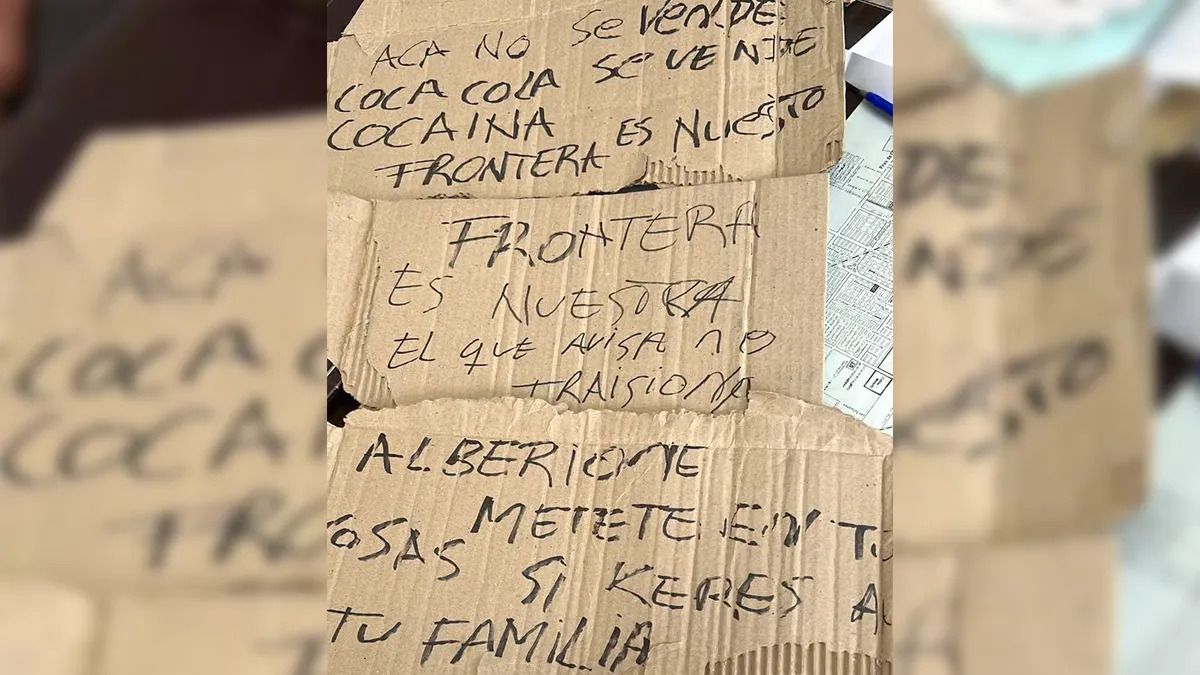 ACA NO SE VENDE
COCA COLA SE VENDE
COCAINA
FRONTERA ES NUESTO
FRONTERA
ES NUESTRA
EL QUE AVISA NO
TRAISIONA
ALBERIONE
METETE EN T
OSAS
SI KERES A
TU FAMILIA